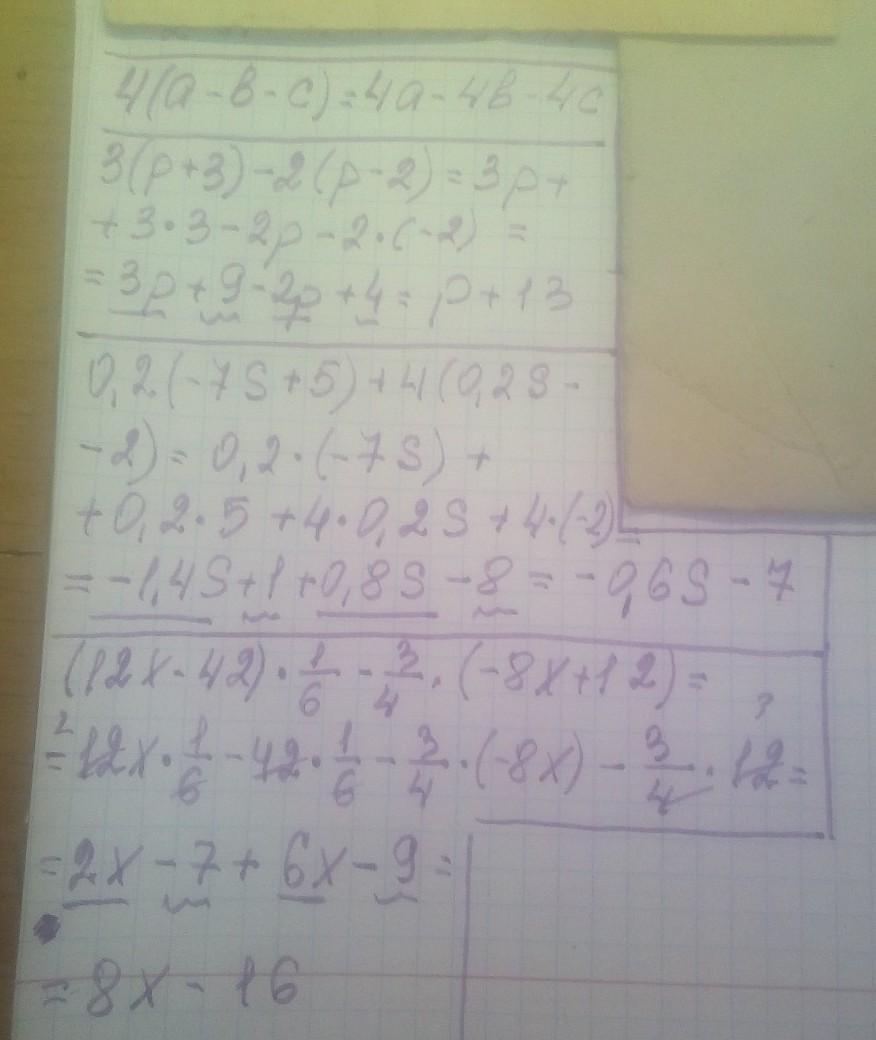 4(a-b-c)=4a-4b-4c
3(p+3)-2(p-2)=3p+
+3·3-2p-2·(-2)=
=3p+9-2p+4=p+13
0,2(-7S+5)+4(0,2S-
-2)=0,2·(-7S)+
+0,2·5+4·0,2S+4·(-2)=
=-1,4S+1+0,8S-8=-0,6S-7
(12x-42)·1/6-3/4·(-8x+12)=
=12x·1/6-42·1/6-3/4·(-8x)-3/4·12=
=2x-7+6x-9=
=8x-16